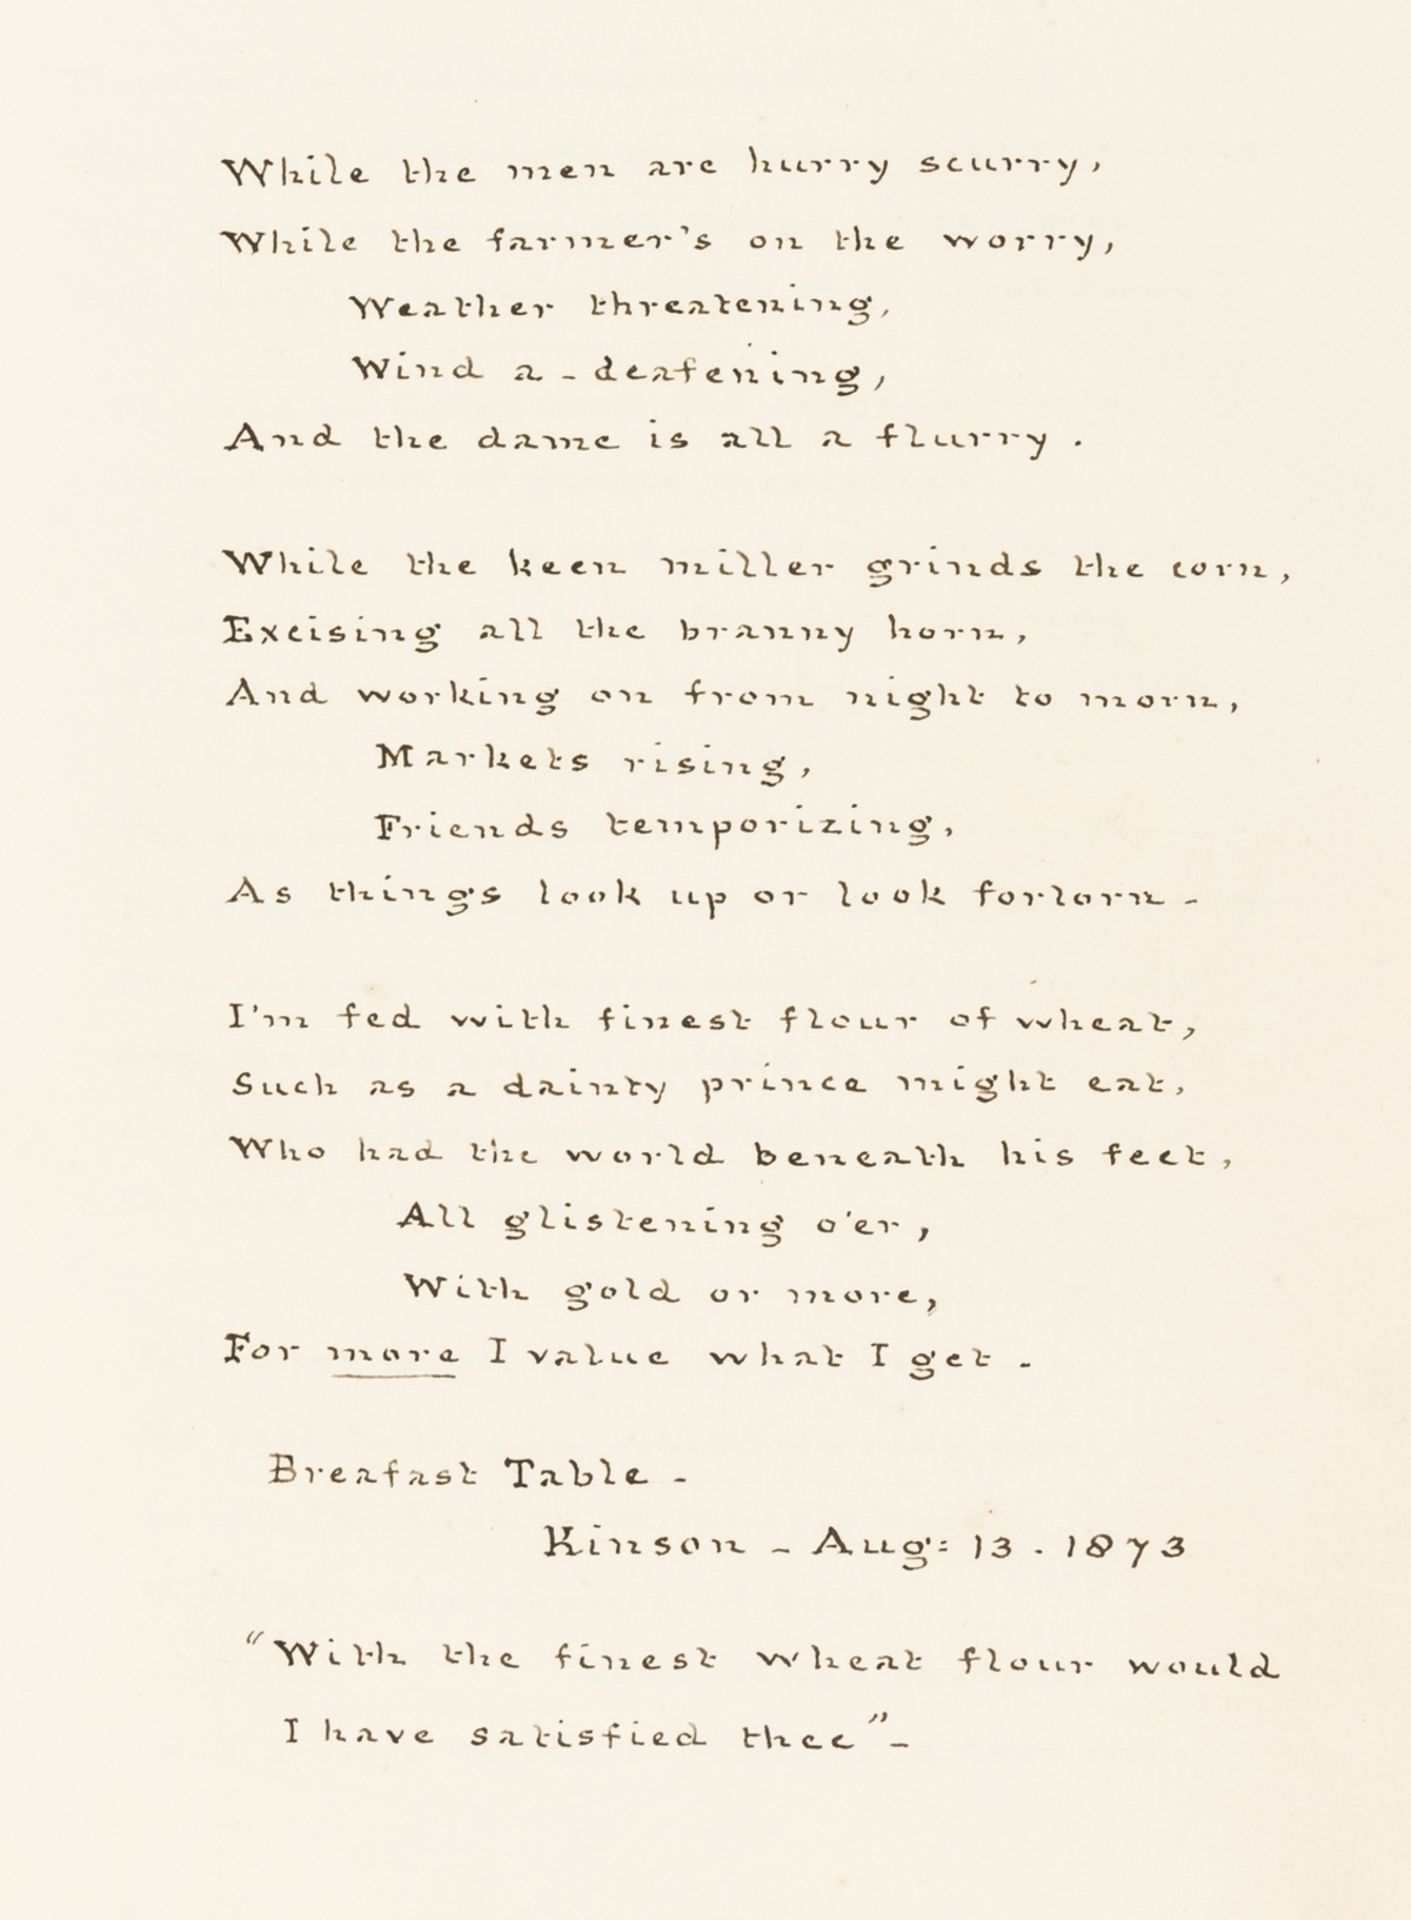 While the men are hurry scurry,
While the farmer's on the worry,
Weather threatening,
Wind a-deafening,
And the dame is all a flurry.
While the keen miller grinds the corn,
Excising all the branny horn,
And working on from night to morn,
Markets rising,
Friends temporizing,
As things look up or look forlorn -
I'm fed with finest flour of wheat,
Such as a dainty prince might eat,
Who had the world beneath his feet,
All glistening o'er,
With gold or more,
For more I value what I get -
Breafast Table -
Kinson - Aug: 13. 1873
"With the finest wheat flour would
I have satisfied thee" -